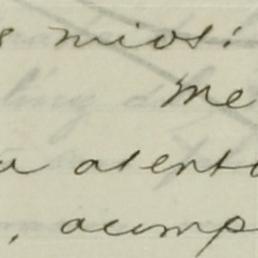 s mios:
Me
a atento
, acomp